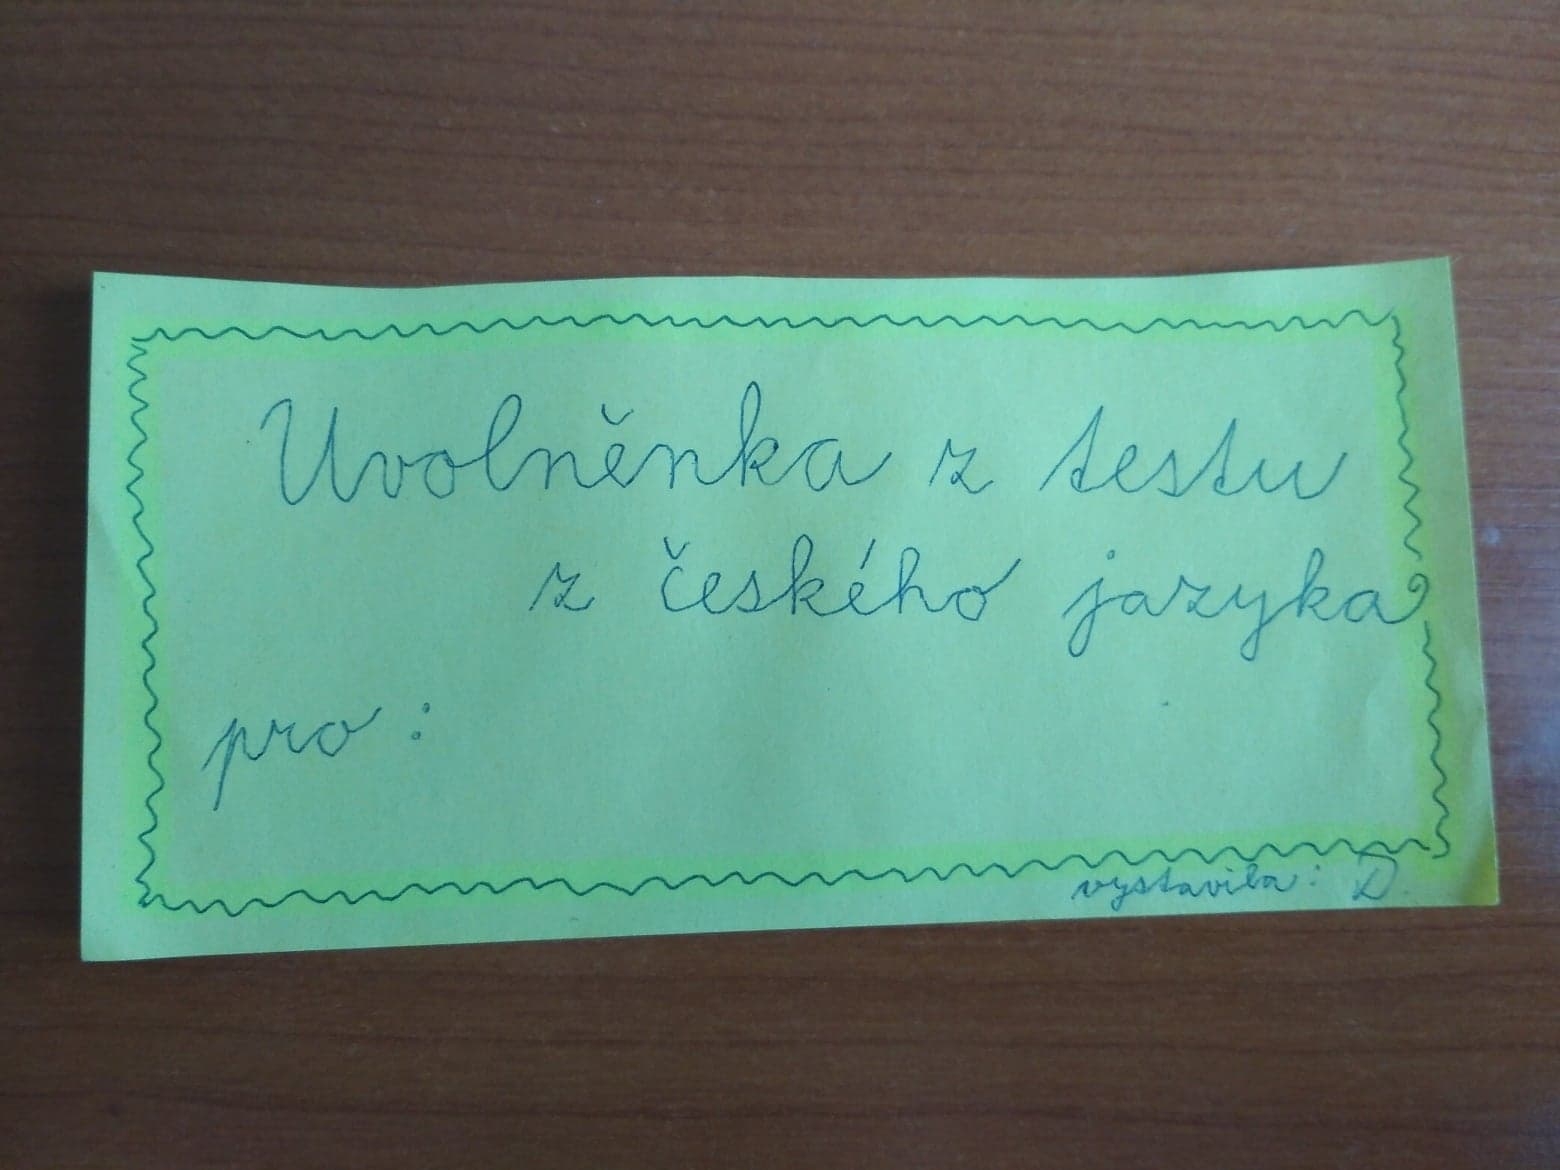 Uvolněnka z testu
z českého jazyka
pro :
vystavila: D.